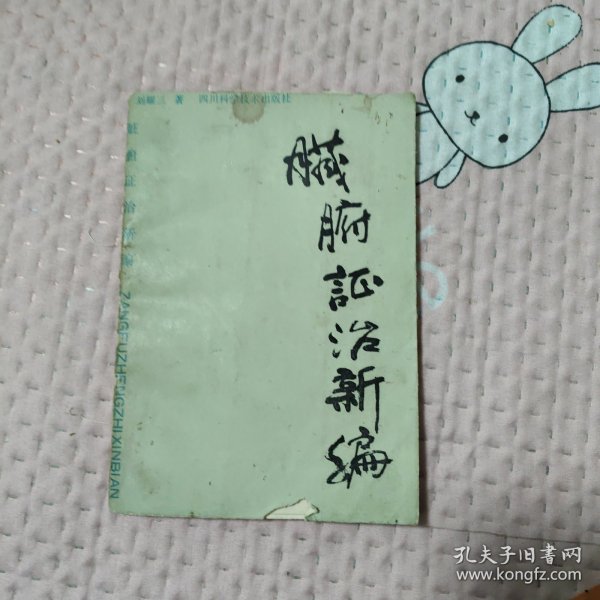 刘耀三 著 四川科学技术出版社
臓腑証治新编
脏腑证治新编
ZANGFUZHENGZHIXINBIAN
孔夫子旧书网
www.kongfz.com